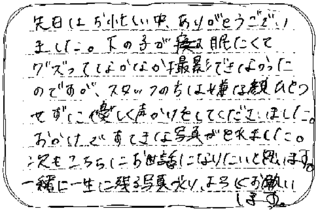 先日はお忙しい中、ありがとうござい
ました。下の子が寝る眠たくて
グズってしまいなかなか撮影できなかった
のですが、スタッフの方は嫌な顔ひとつ
せずに優しく声かけをしてくださいました。
おかげですてきな写真がとれました。
次もこちらにお世話になりたいと思います。
一緒に一生に残る写真
お願い
します。